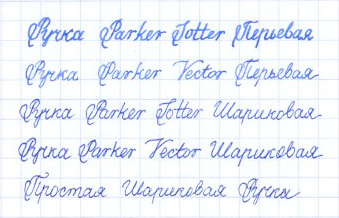 Ручка Parker Jotter Перьевая
Ручка Parker Vector Перьевая
Ручка Parker Jotter Шариковая
Ручка Parker Vector Шариковая
Простая Шариковая Ручка